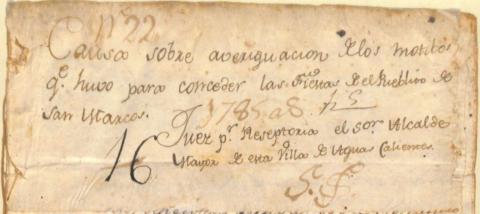 Nº 22
Causa sobre averiguacion de los motibos
q.e huvo para conceder las tierras de el Pueblito de
San Marcos. 1785
16 Juez p.r Reseptoria el Sor. Alcalde
Mayor de esta Villa de Aguas Calientes.